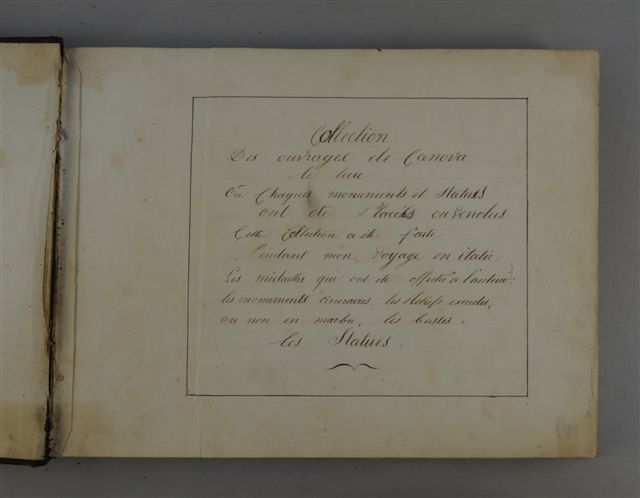 Collection
Des ouvrages de Canova
le lieu
Où Chaques monuments et Statues
ont été Placées ou vendus
Cette Collection a été faite
Pendant mon voyage en italie
Les médailles qui ont été offertes a l'auteur:
les monuments cineraires, les Reliefs executés,
ou non en marbre, les bustes,
les Statues.